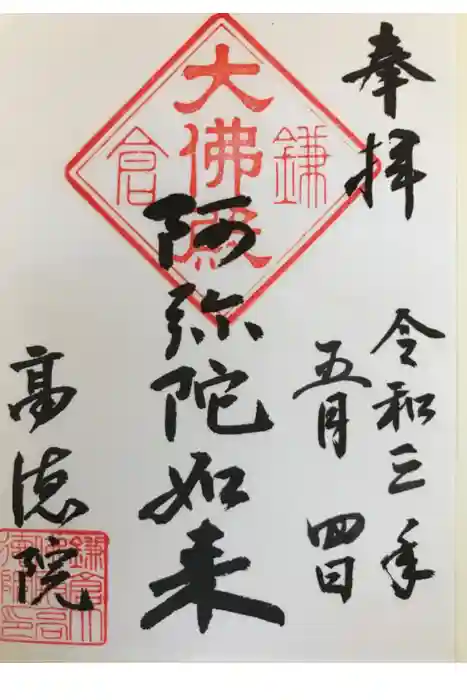 奉拝
令和三年
五月四日
阿弥陀如来
大佛殿
鎌倉
高徳院